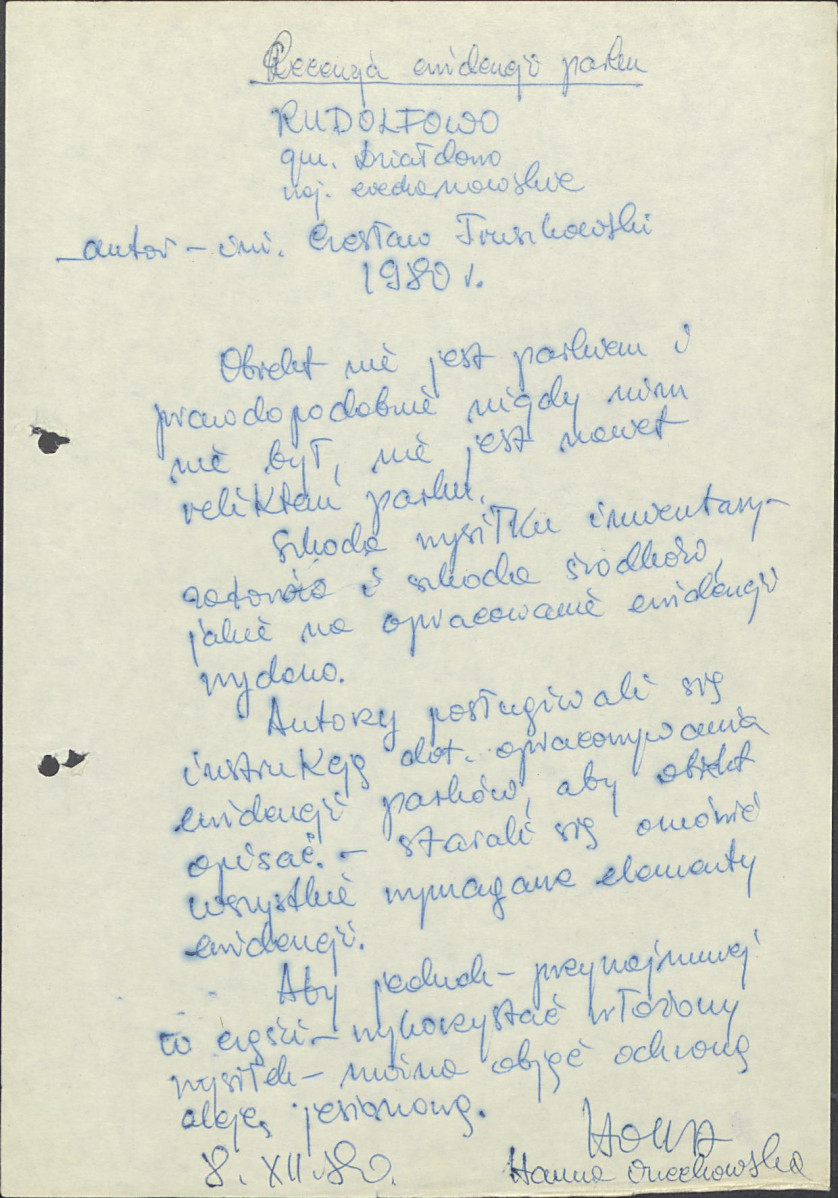 Recenzja ewidencji parku
RUDOLFOWO
gm. Działdowo
woj. ciechanowskie
- autor - inż. Czesław Truszkowski
1980 r.
Obiekt nie jest parkiem i
prawdopodobnie nigdy nim
nie był, nie jest nawet
reliktem parku.
Szkoda wysiłku inwentary-
zatorów i szkoda środków,
jakie na opracowanie ewidencji
wydano.
Autorzy posługiwali się
instrukcją dot. opracowywania
ewidencji parków, aby obiekt
opisać. - starali się omówić
wszystkie wymagane elementy
ewidencji.
Aby jednak - przynajmniej
w części - wykorzystać włożony
wysiłek - można objąć ochroną
aleję jesionową.
8. XII. 80.
Hanna